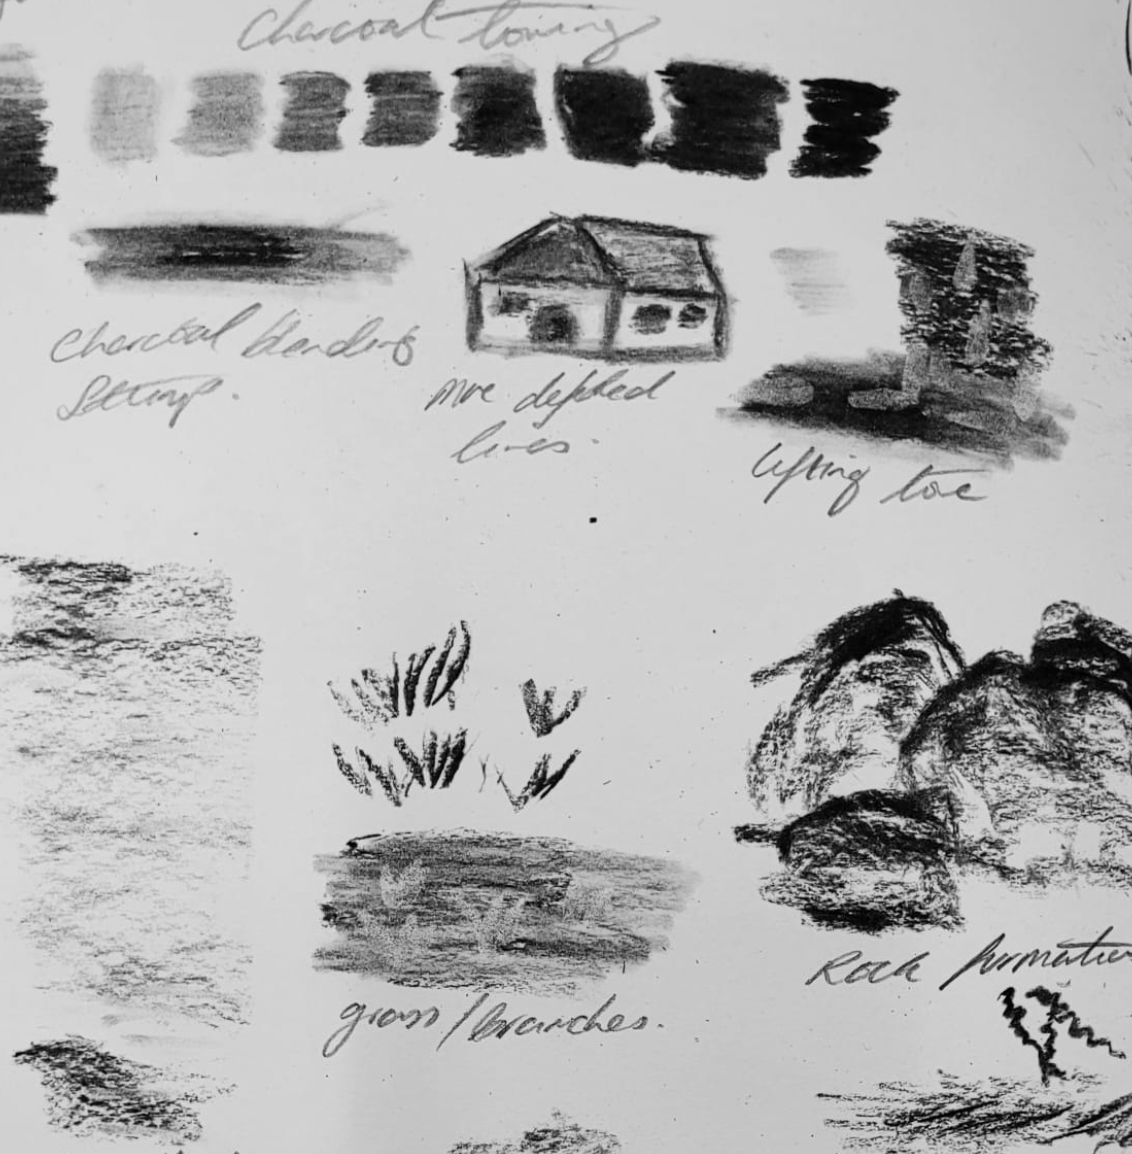 Charcoal toning
Charcoal blending
more defined
lines.
Lifting tone
Rock formation
grass/branches.